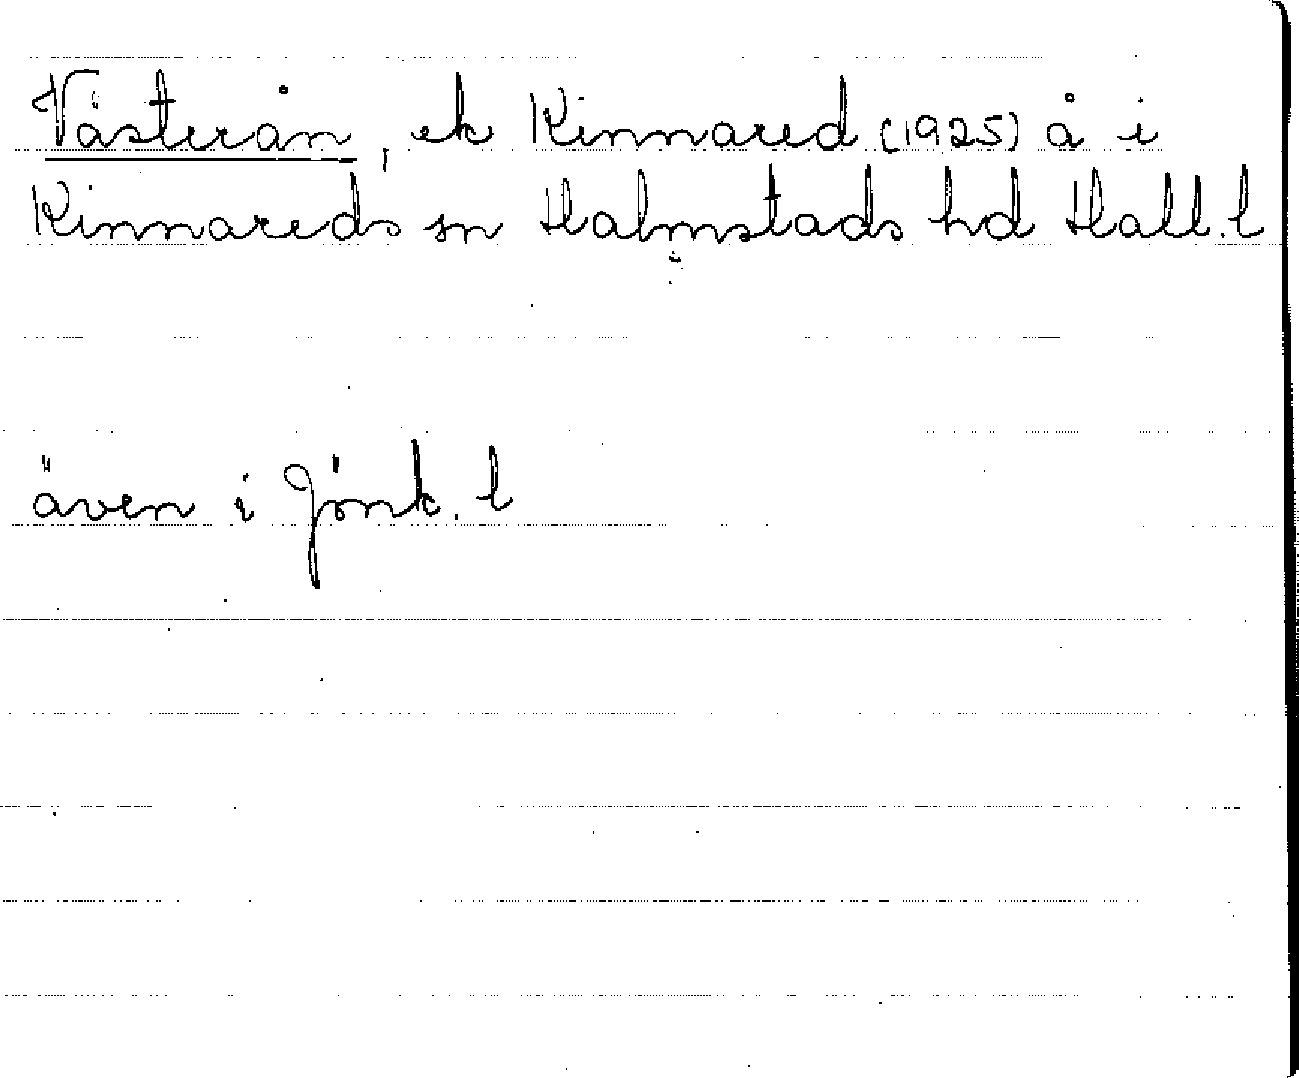 Västerån, ek Kinnared (1925) å i
Kinnareds sn Halmstads hd Hall. l
även i Jönk. l